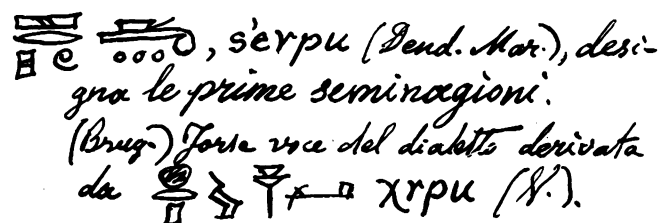 , šerpu (Dend. Mar.), desi-
gna le prime seminagioni.
(Brug.) Forse voce del dialetto derivata
da χrpu (V.).